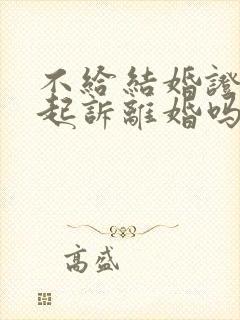 不給結婚證
起訴離婚嗎
高盛